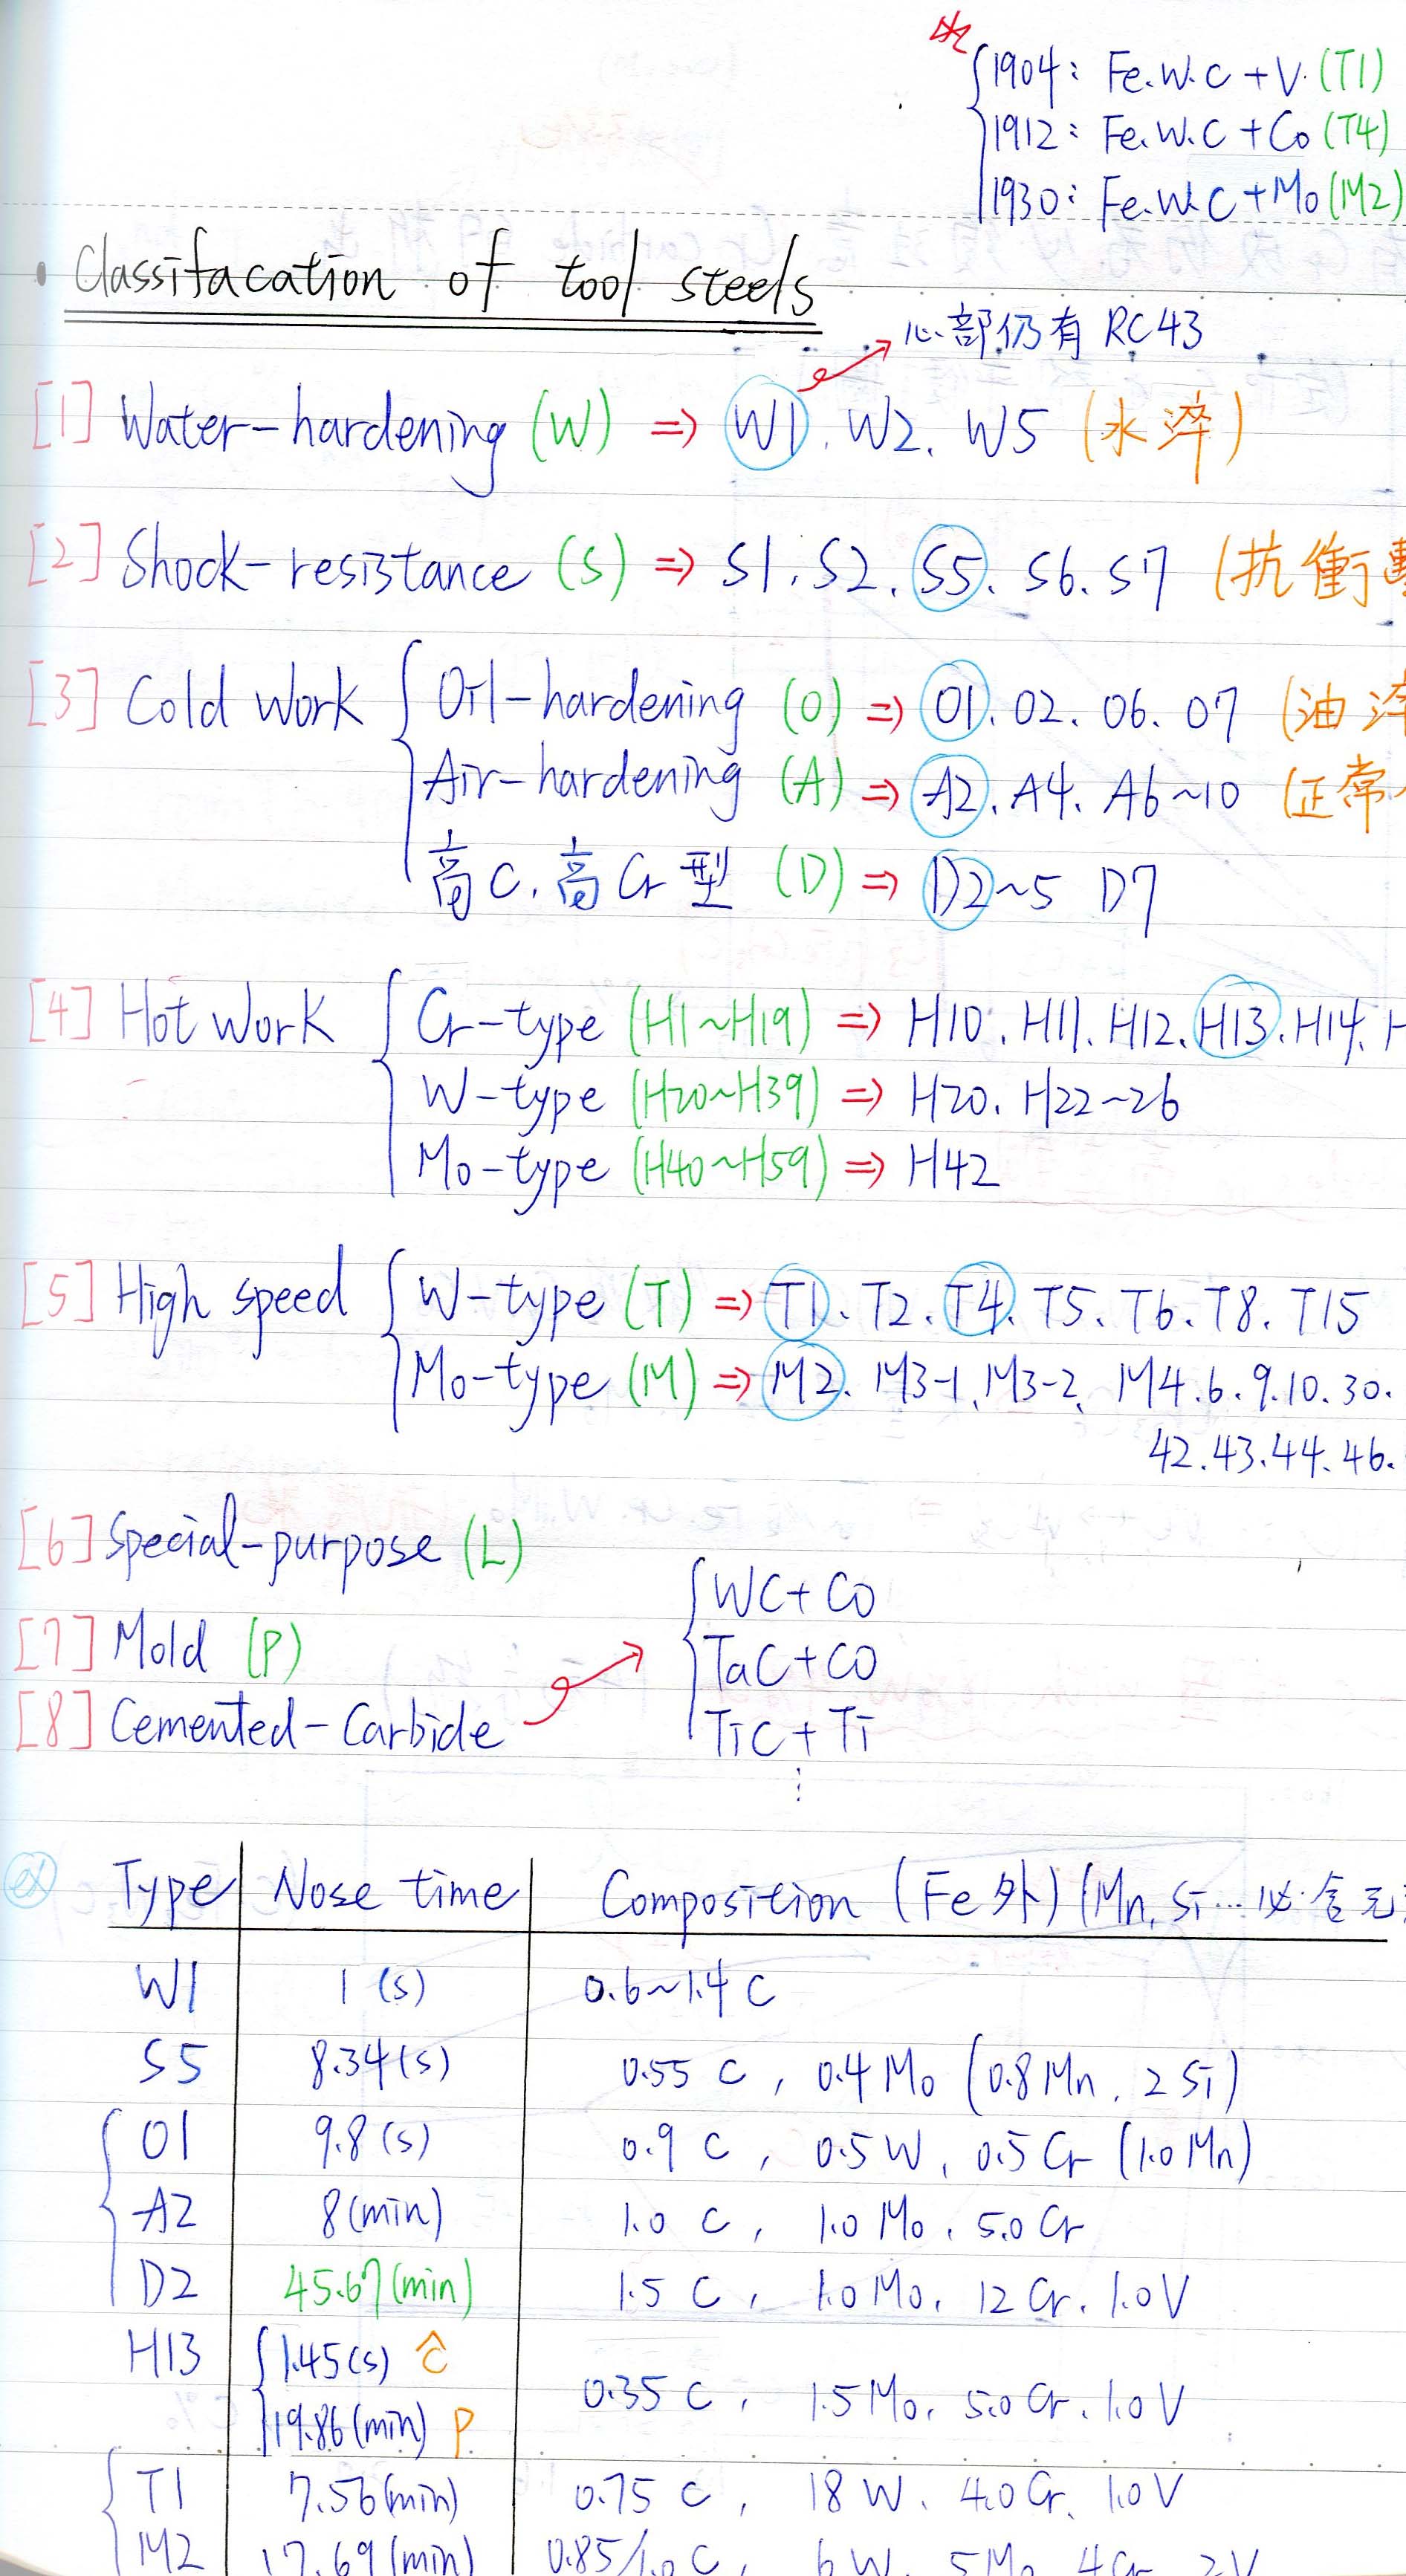 1904: Fe.W.C + V. (T1)
1912: Fe.W.C + Co (T4)
1930: Fe.W.C + Mo (M2)
• Classifacation of tool steels
心部仍有 RC43
[1] Water-hardening (W) ⇒ W1. W2. W5 (水淬)
[2] Shock-resistance (S) ⇒ S1. S2. S5. S6. S7 (抗衝
[3] Cold work { Oil-hardening (O) ⇒ O1. O2. O6. O7 (油淬
Air-hardening (A) ⇒ A2. A4. A6~10 (正常
高C. 高Cr型 (D) ⇒ D2~5 D7
[4] Hot work { Cr-type (H1~H19) ⇒ H10. H11. H12. H13. H14. H
W-type (H20~H39) ⇒ H20. H22~26
Mo-type (H40~H59) ⇒ H42
[5] High speed { W-type (T) ⇒ T1. T2. T4. T5. T6. T8. T15
Mo-type (M) ⇒ M2. M3-1. M3-2. M4.6.9.10.30.
42.43.44.46.
[6] Special-purpose (L)
[7] Mold (P)
[8] Cemented-Carbide
WC+CO
TaC+CO
TiC+Ti
⋮
ex Type Nose time Composition (Fe外) (Mn, Si…必含元
W1 1 (s) 0.6~1.4 C
S5 8.34(s) 0.55 C, 0.4 Mo (0.8 Mn. 2 Si)
O1 9.8(s) 0.9 C, 0.5 W. 0.5 Cr (1.0 Mn)
A2 8(min) 1.0 C, 1.0 Mo. 5.0 Cr
D2 45.67(min) 1.5 C, 1.0 Mo. 12 Cr. 1.0 V
H13 { 1.45(s) Ĉ
19.86(min) P 0.35 C, 1.5 Mo. 5.0 Cr. 1.0 V
T1 7.56(min) 0.75 C, 18 W. 4.0 Cr. 1.0 V
M2 17.69(min) 0.85/1.0 C, 6 W. 5 Mo. 4 Cr. 2 V